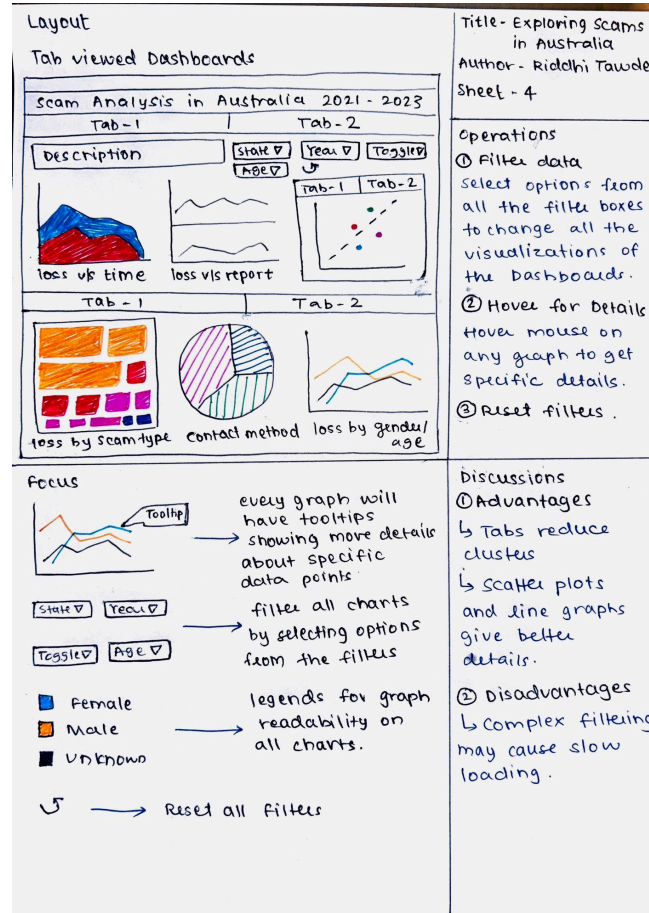 Layout
Tab viewed Dashboards
Scam Analysis in Australia 2021 - 2023
Tab-1 Tab-2
Description
State Year Toggle
Age
Tab-1 Tab-2
loss v/s time
loss v/s report
Tab-1 Tab-2
loss by scam type
contact method
loss by gender/
age
Title- Exploring Scams
in Australia
Author- Riddhi Tawde
Sheet - 4
Operations
① Filter data
Select options from
all the filter boxes
to change all the
visualizations of
the Dashboards.
② Hover for Details
Hover mouse on
any graph to get
specific details.
③ Reset filters.
Focus
Tooltip
every graph will
have tooltips
showing more details
about specific
data points.
State Year
Toggle Age
filter all charts
by selecting options
from the filters
Female
Male
Unknown
legends for graph
readability on
all charts.
Reset all filters
Discussions
① Advantages
↳ Tabs reduce
clusters
↳ Scatter plots
and line graphs
give better
details.
② Disadvantages
↳ Complex filtering
may cause slow
loading.